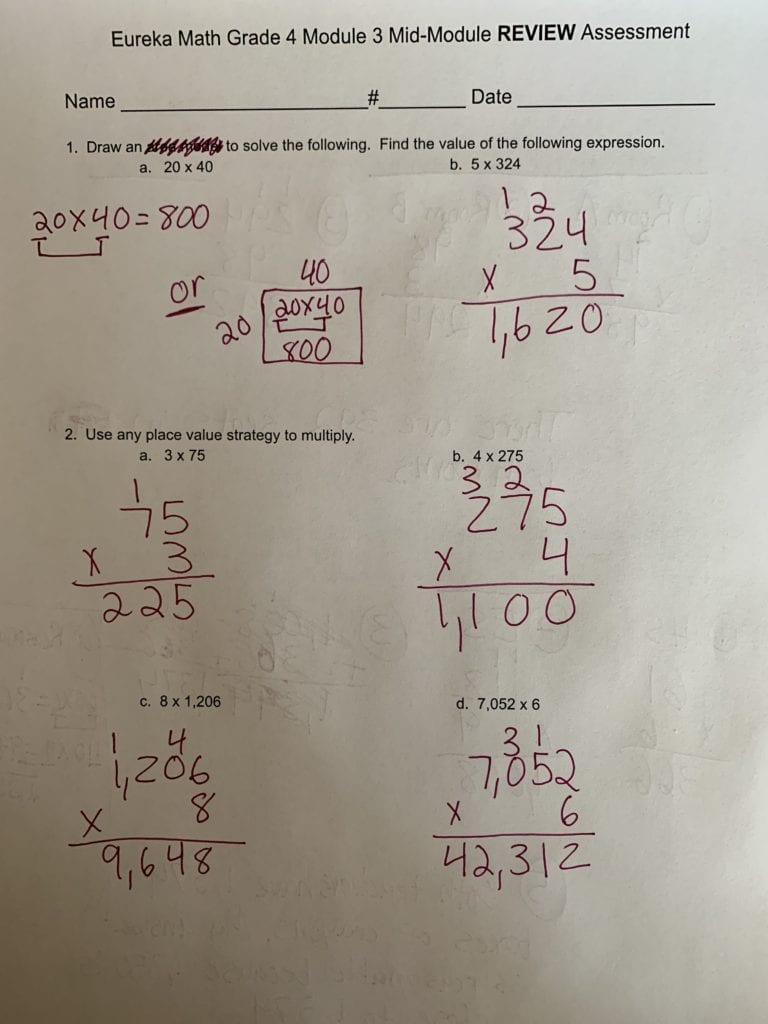 Eureka Math Grade 4 Module 3 Mid-Module REVIEW Assessment
Name # Date
1. Draw an to solve the following. Find the value of the following expression.
a. 20 x 40
b. 5 x 324
20x40=800
or
40
20
20x40
800
1 2
324
x 5
1,620
2. Use any place value strategy to multiply.
a. 3 x 75
b. 4 x 275
1
75
x 3
225
3 2
275
x 4
1,100
c. 8 x 1,206
d. 7,052 x 6
1 4
1,206
x 8
9,648
3 1
7,052
x 6
42,312